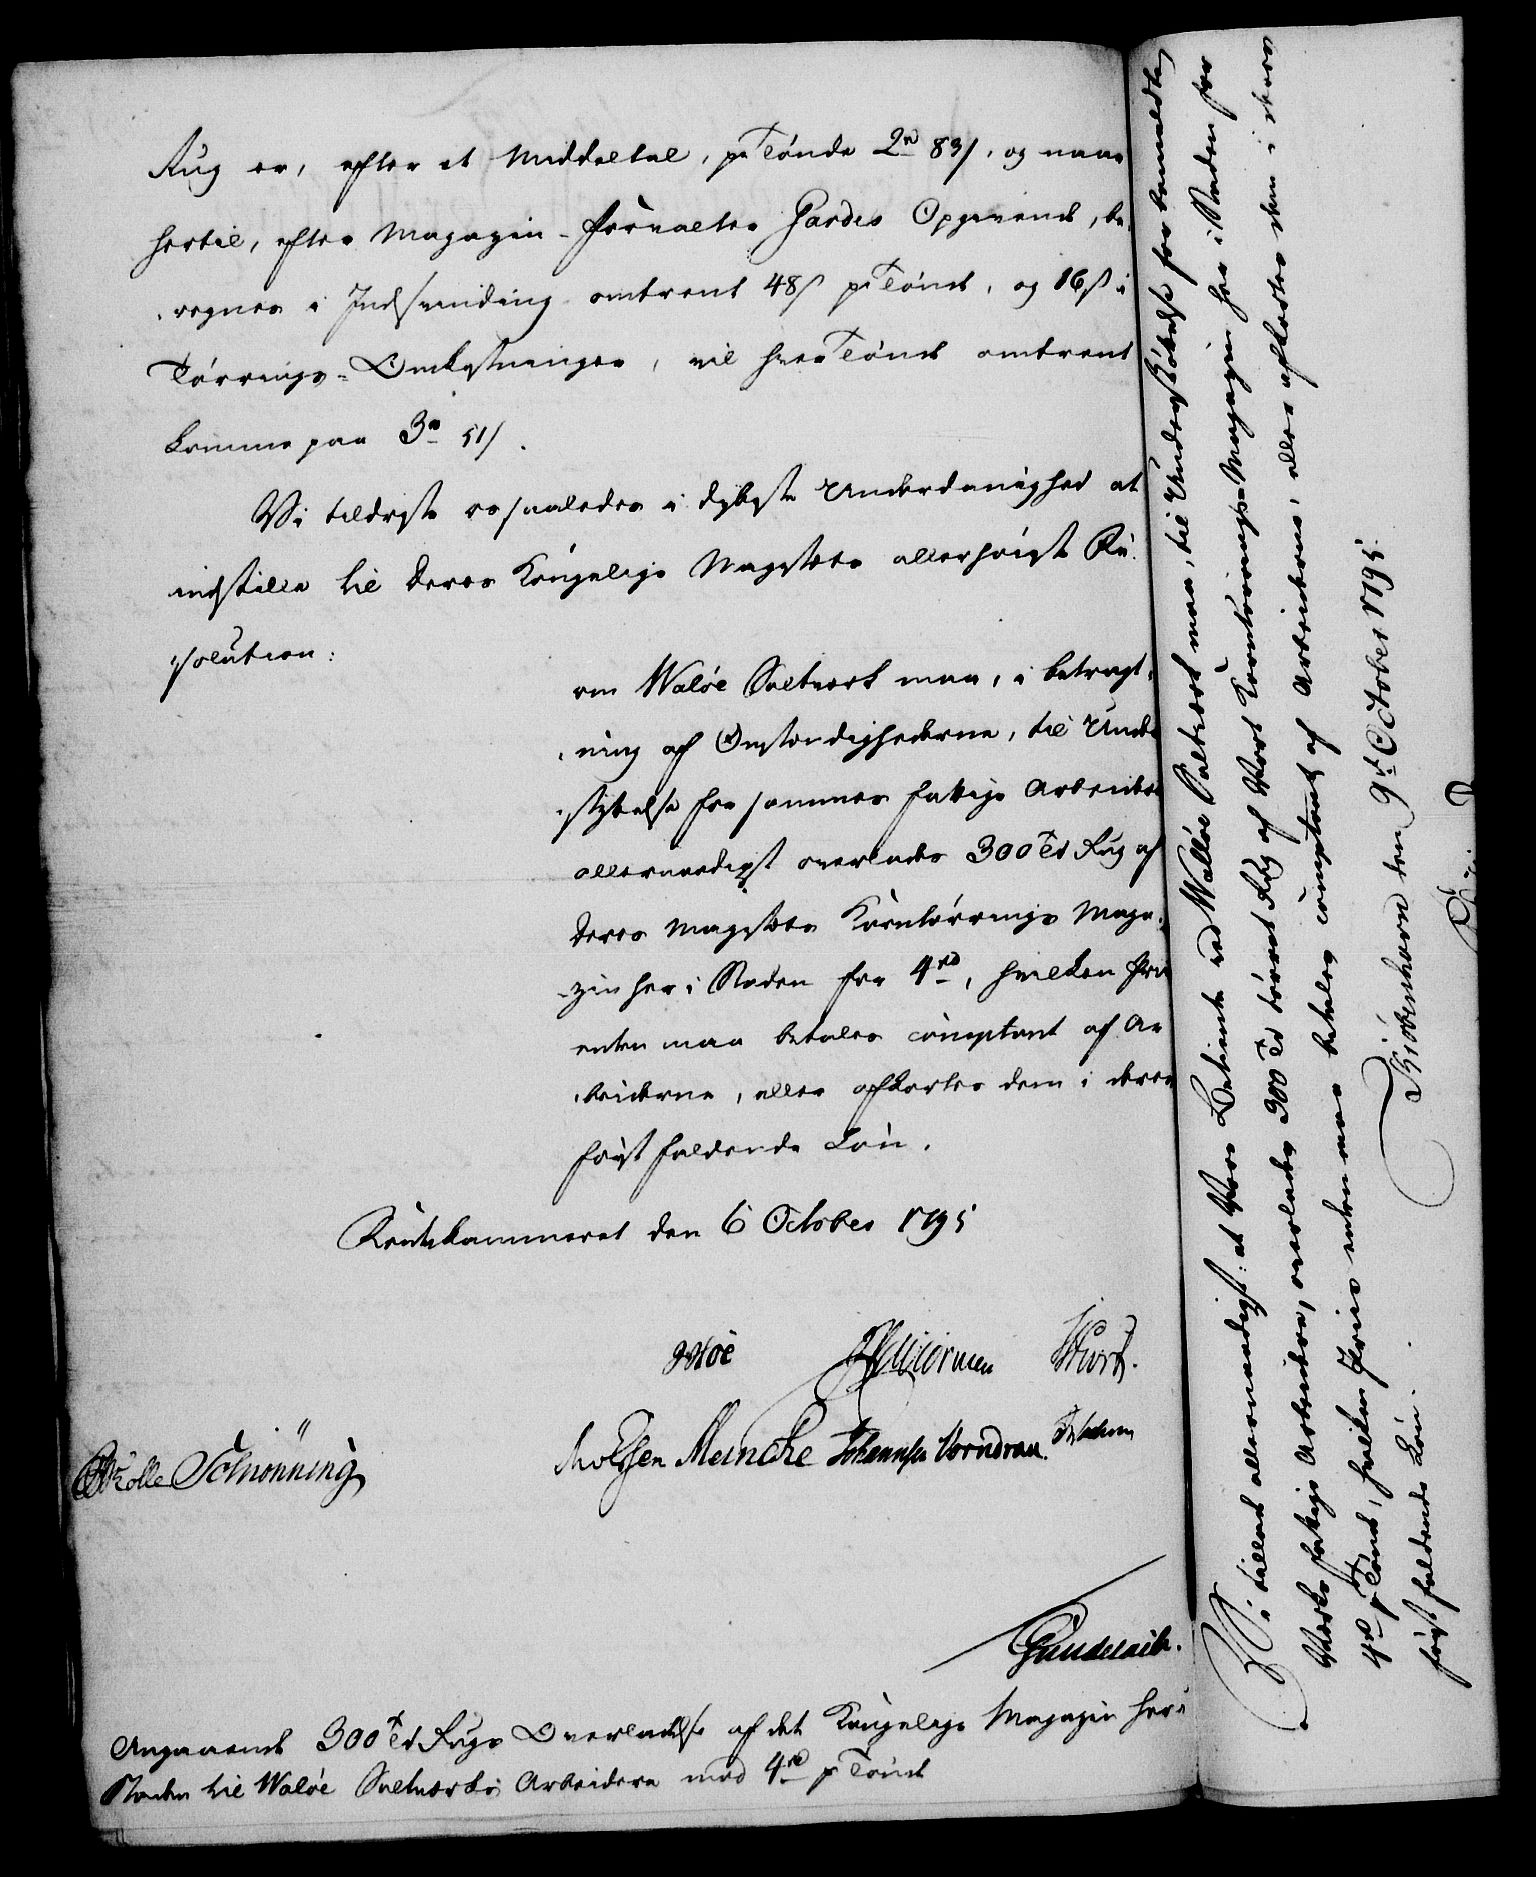 Rug er, efter et Middeltal, pr Tönde 2rd 83 s, og naar
hertil, efter Magazin-Forvalter Gardes Opgivende, be-
regnes i Indsvinding omtrent 48 s pr Tönde, og 16 s i
Törrings-Omkostninger, vil hver Tönde omtrent
komme paa 3rd 51 s.
Vi tildriste os saaledes i dybeste Underdanighed at
indstille til Deres Kongelige Majestets allerhöieste Re-
solution:
om Waløe Saltværk maa, i betragt-
ning af Omstændighederne, til Under-
støttelse for sammes fattige Arbeidere
allernaadigst overlades 300 Tdr Rug af
Deres Majestets Korntørrings Maga-
zin her i Staden for 4rd, hvilken Priis
enten maa betales comptant af Ar-
beiderne, eller afkortes dem i deres
først faldende Løn.
Rentekammeret den 6 October 1795
Meincke Johannsen Vorndran
Schiönning
Gundelach.
Angaaende 300 Tdr Rugs Overladelse af det Kongelige Magazin her i
Staden til Waløe Saltværks Arbeidere mod 4rd pr Tönde
Vi tillade allernaadigst: at Vore Betiente ved Walløe Saltværk maa, til Understøttelse for bemeldte
Værks fattige Arbeidere, overlades 300 Tdr tørret Rug af Vort Korntørrings-Magazin her i Staden for
4rd pr Tönde, hvilken Priis enten maa betales comptant af Arbeiderne, eller afkortes dem i deres
først faldende Løn.
Kiøbenhavn den 9de October 1795.